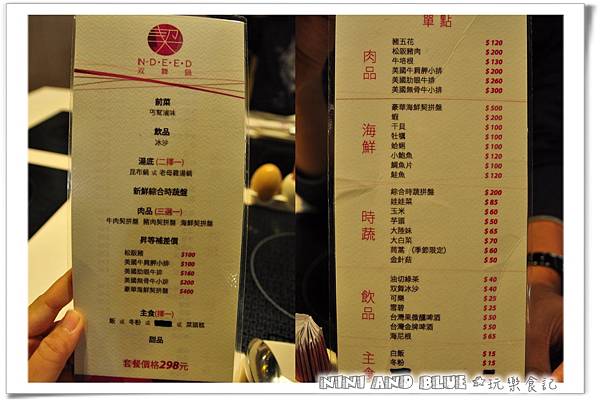 契
N·D·E·E·D
双舞鍋
前菜
巧幫滷味
飲品
冰沙
湯底 (二擇一)
昆布鍋 或 老母雞湯鍋
新鮮綜合時蔬盤
肉品 (三選一)
牛肉契拼盤 豬肉契拼盤 海鮮契拼盤
昇等補差價
松阪豬 $100
美國牛肩胛小排 $100
美國肋眼牛排 $160
美國無骨牛小排 $200
豪華海鮮契拼盤 $400
主食(擇一)
飯 或 冬粉 或 或 菜頭粿
甜品
套餐價格298元
單點
肉品
豬五花 $120
松阪豬肉 $200
牛培根 $130
美國牛肩胛小排 $200
美國肋眼牛排 $260
美國無骨牛小排 $300
海鮮
豪華海鮮契拼盤 $500
蝦 $200
干貝 $100
牡蠣 $100
蛤蜊 $100
小鮑魚 $120
鯛魚片 $100
鮭魚 $120
時蔬
綜合時蔬拼盤 $200
娃娃菜 $85
玉米 $60
芋頭 $50
大陸妹 $65
大白菜 $70
茼蒿 (季節限定) $60
金針菇 $50
飲品
油切綠茶 $40
双舞冰沙 $40
可樂 $25
雪碧 $25
台灣果微醺啤酒 $50
台灣金牌啤酒 $50
海尼根 $65
主食
白飯 $15
冬粉 $15
NINI AND BLUE 玩樂食記